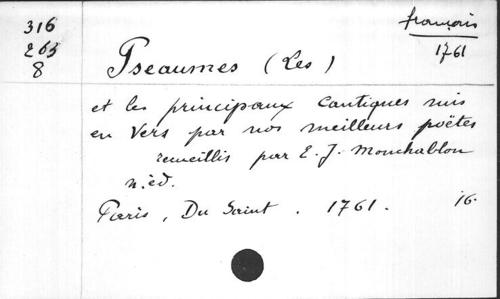 316
265
8
français
1761
Pseaumes (Les)
et les principaux Cantiques mis
en Vers par nos meilleurs poëtes
recueillis par E. J. Monchablon
n. éd.
Paris, Du Saint. 1761. 16.